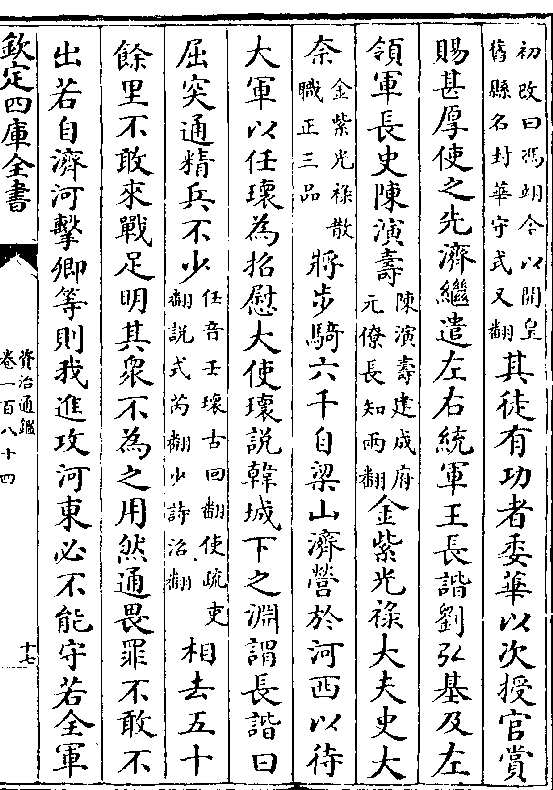 初改曰馮翊今以開皇
舊縣名封華守式又翻
其徒有功者委華以次授官賞
賜甚厚使之先濟繼遣左右統軍王長諧劉弘基及左
領軍長史陳演壽
陳演壽建成府
元僚長知兩翻
金紫光祿大夫史大
奈
金紫光祿散
職正三品
將步騎六千自梁山濟營於河西以待
大軍以任瓌為招慰大使瓌說韓城下之淵謂長諧曰
屈突通精兵不少
任音壬瓌古回翻使疏吏
翻說式芮翻少詩沼翻
相去五十
餘里不敢來戰足明其衆不為之用然通畏罪不敢不
出若自濟河擊卿等則我進攻河東必不能守若全軍
欽定四庫全書
資治通鑑
卷一百八十四
十七